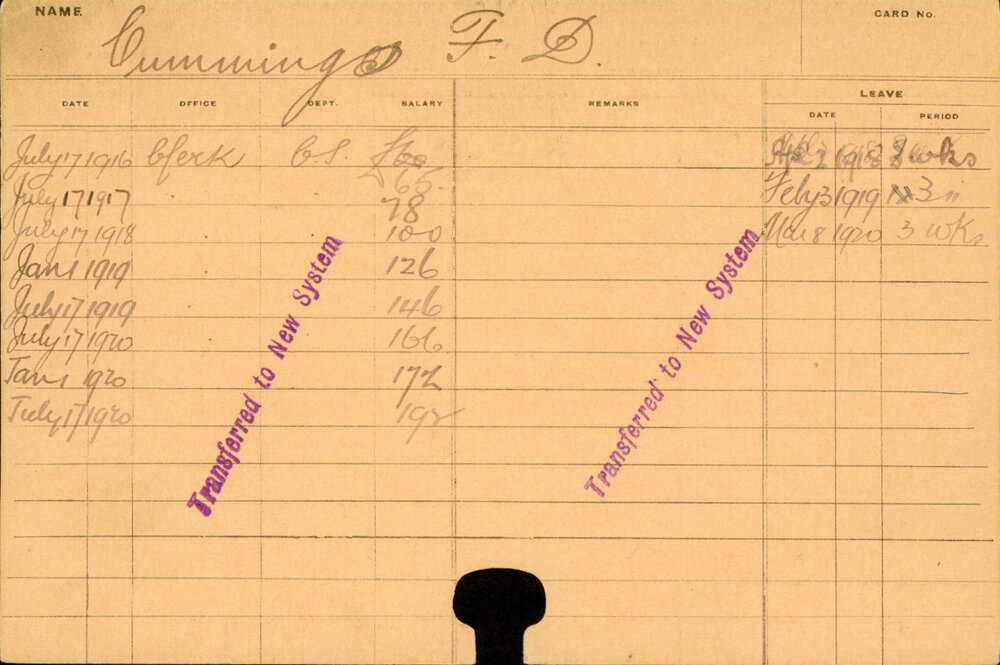 NAME. Cummings F. D. CARD No.
LEAVE
DATE OFFICE DEPT. SALARY REMARKS DATE PERIOD
July 17 1916 Clerk 1918 3 wks
65
July 17 1917 78 Feby 3 1919 3 "
July 17 1918 100 Mar 8 1920 3 wks
Jan 1 1919 126
July 17 1919 146
July 17 1920 166
Jan 1 1920 172
July 17 1920 192
Transferred to New System
Transferred to New System